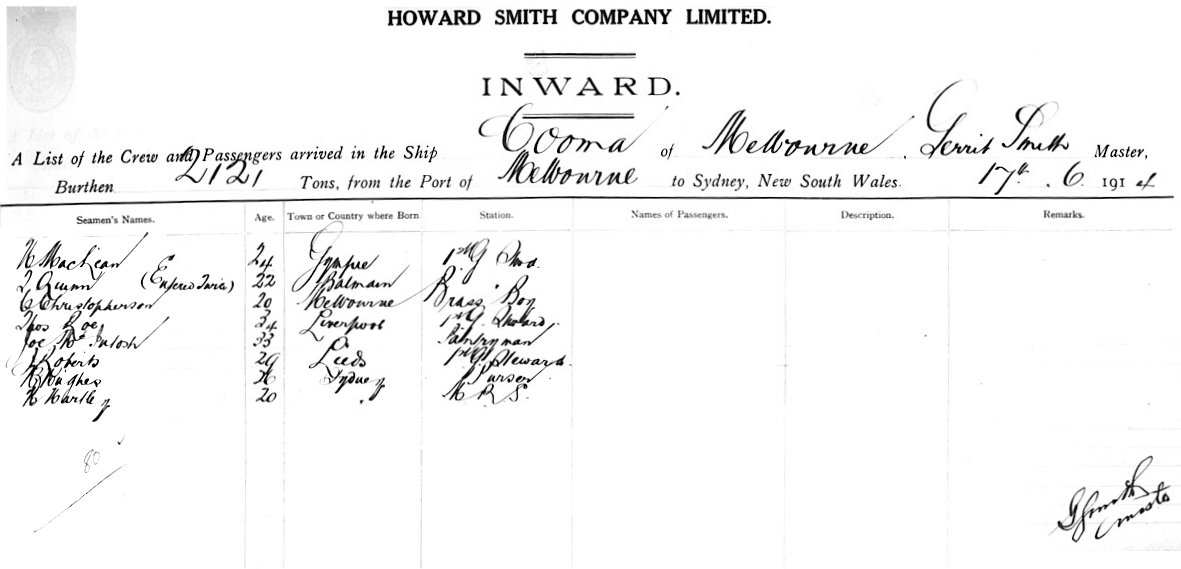 HOWARD SMITH COMPANY LIMITED.
INWARD.
A List of the Crew and Passengers arrived in the Ship Cooma of Melbourne Gerrit Smith Master,
Burthen 2121 Tons, from the Port of Melbourne to Sydney, New South Wales. 17th . 6. 1914
Seamen's Names. Age. Town or Country where Born Station. Names of Passengers. Description. Remarks.
MacLean 24 Gympie 1st G
Quinn (Entered Twice) 22 Balmain
C Christopherson 20 Melbourne Brass Boy
Thos Roe 34 Liverpool 1st G.
Joe McIntosh 33 Pantryman
J Roberts 29 Leeds 1st G. Steward
Hughes Sydney Purser
H Hartley 20 "
80
G Smith
Master